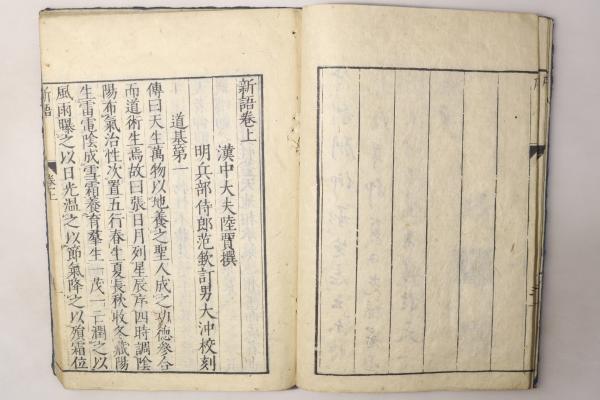 新語卷上
漢中大夫陸賈撰
明兵部侍郎范欽訂男大沖校刻
道基第一
傳曰天生萬物以地養之聖人成之功德參合
而道術生焉故曰張日月列星辰序四時調陰
陽布氣治性次置五行春生夏長秋收冬藏陽
生雷電陰成雪霜養育羣生一茂一亡潤之以
風雨曝之以日光溫之以節氣降之以殞霜位
新語 卷上